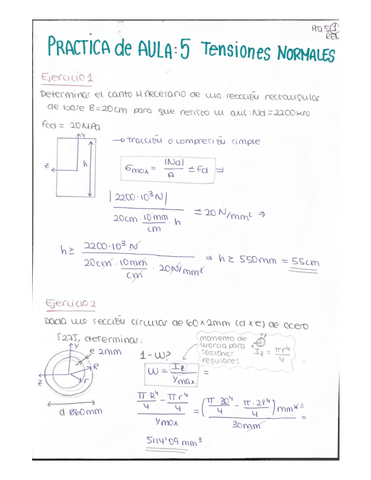 PRA 5 1
PRACTICA de AULA: 5 TENSIONES NORMALES
Ejercicio 1
Determinar el canto H necesario de una sección rectangular
de base B=20cm para que resista un axil: Nd=2200kN
fcd = 20MPa
Y
z
h
→ Tracción o compresión simple
σmax = |Nd| / A ≤ fd ⇒
|2200·10³N| / 20cm · 10mm/cm · h ≤ 20N/mm² ⇒
h ≥ 2200·10³N / 20cm · 10mm/cm · 20N/mm² ⇒ h ≥ 550mm = 55cm
Ejercicio 2
Dada una sección circular de 60x2mm (d x e) de acero
S275, determinar:
e 2mm
Y
z
R
r
d Ø60mm
1-W?
W = Iz / Ymax
momento de
inercia para
secciones
regulares
Iz = πr⁴/4
πR⁴/4 - πr⁴/4 / Ymax = (π·30⁴/4 - π·28⁴/4) mm⁴ / 30mm =
5114'09 mm³